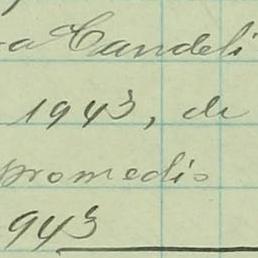 a Candeli
1943, de
promedio
943